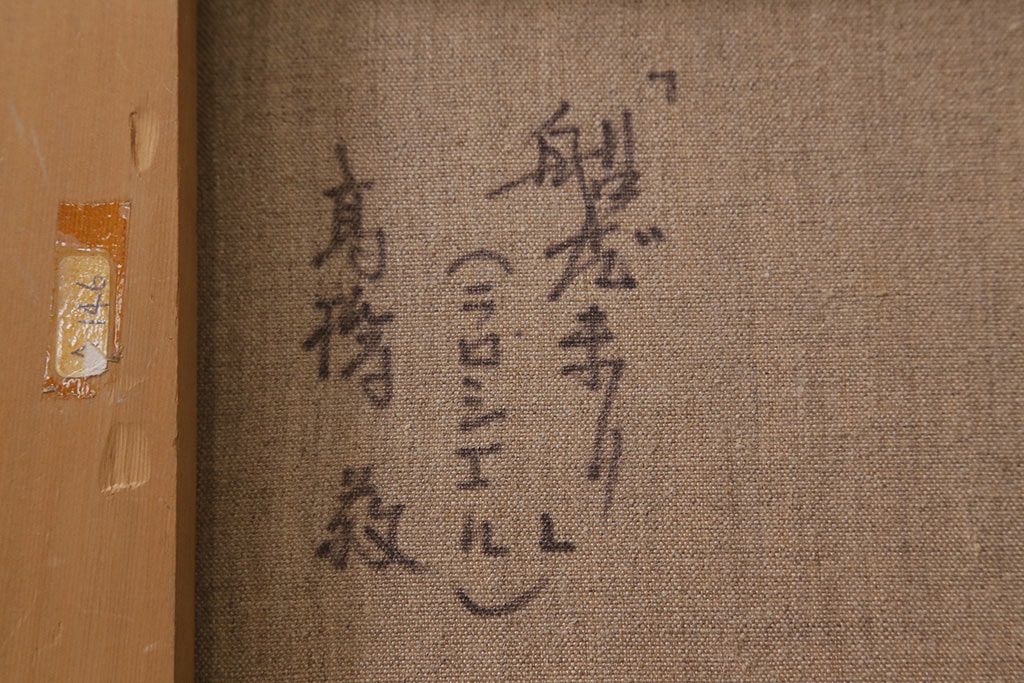 「船だまり」
(ラロシエル)
高橋
146